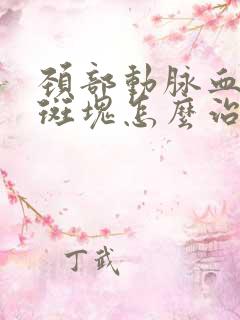 頚部動脉血
斑塊怎麼治
丁武